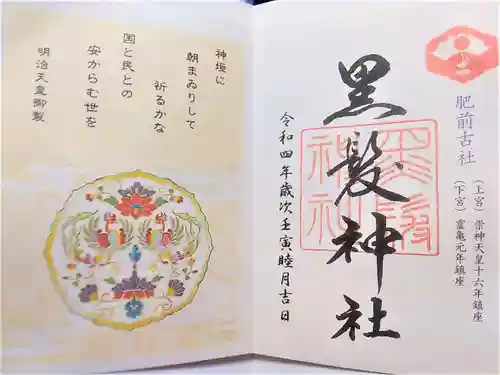 肥前古社
(上宮)崇神天皇十六年鎮座
(下宮)霊亀元年鎮座
黒髪神社
黒髪神社
令和四年歳次壬寅睦月吉日
神垣に
朝まゐりして
祈るかな
国と民との
安からむ世を
明治天皇御製